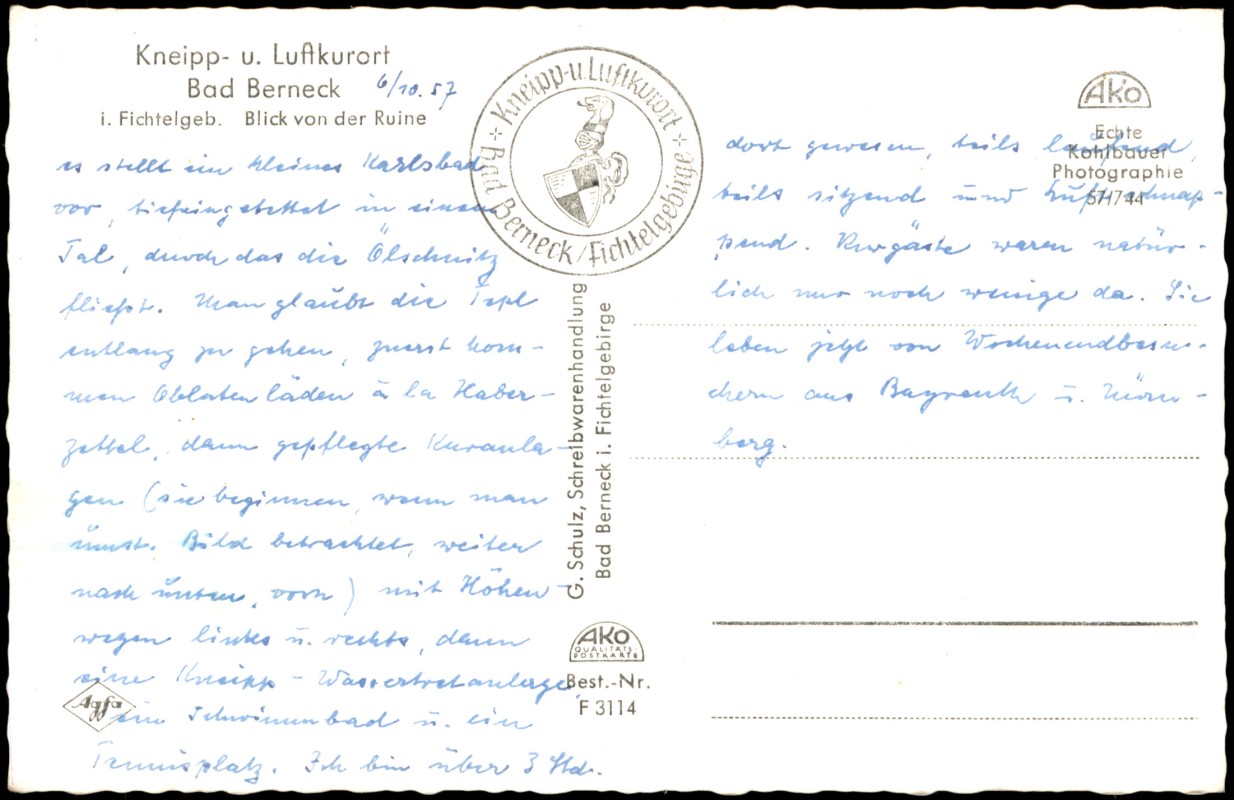 Kneipp- u. Luftkurort
Bad Berneck
i. Fichtelgeb. Blick von der Ruine
6/10.57
es stellt ein kleines Karlsbad
vor, tiefeingebettet in einem
Tal, durch das die Ölschnitz
fließt. Man glaubt die Tepl
entlang zu gehen, zuerst kom-
men Oblatenläden à la Haber-
zettel, dann gepflegte Kuranla-
gen (sie beginnen, wenn man
umst. Bild betrachtet, weiter
nach unten, vorn) mit Höhen-
wegen links u. rechts, dann
eine Kneipp-Wassertretanlage,
ein Schwimmbad u. ein
Tennisplatz. Ich bin über 3 Std.
Kneipp-u. Luftkurort
Bad Berneck/Fichtelgebirge
G. Schulz, Schreibwarenhandlung
Bad Berneck i. Fichtelgebirge
AKO
QUALITÄTS-
POSTKARTE
Best.-Nr.
F 3114
Agfa
AKO
Echte
Kohlbauer
Photographie
57/744
dort gewesen, teils laufend,
teils sitzend und Luft schnap-
pend. Kurgäste waren natür-
lich nur noch wenige da. Sie
leben jetzt von Wochenendbesu-
chern aus Bayreuth u. Nürn-
berg.